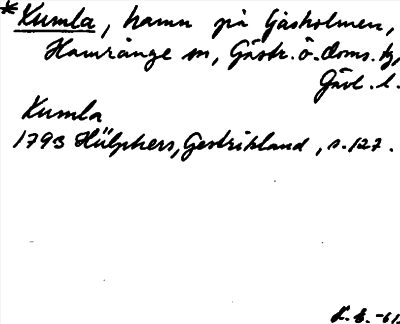 *Kumla, hamn på Gåsholmen,
Hamrånge sn, Gästr. ö. doms. hg,
Gävl. l.
Kumla
1793 Hülphers, Gestrikland, s. 127.
L. E. -61.